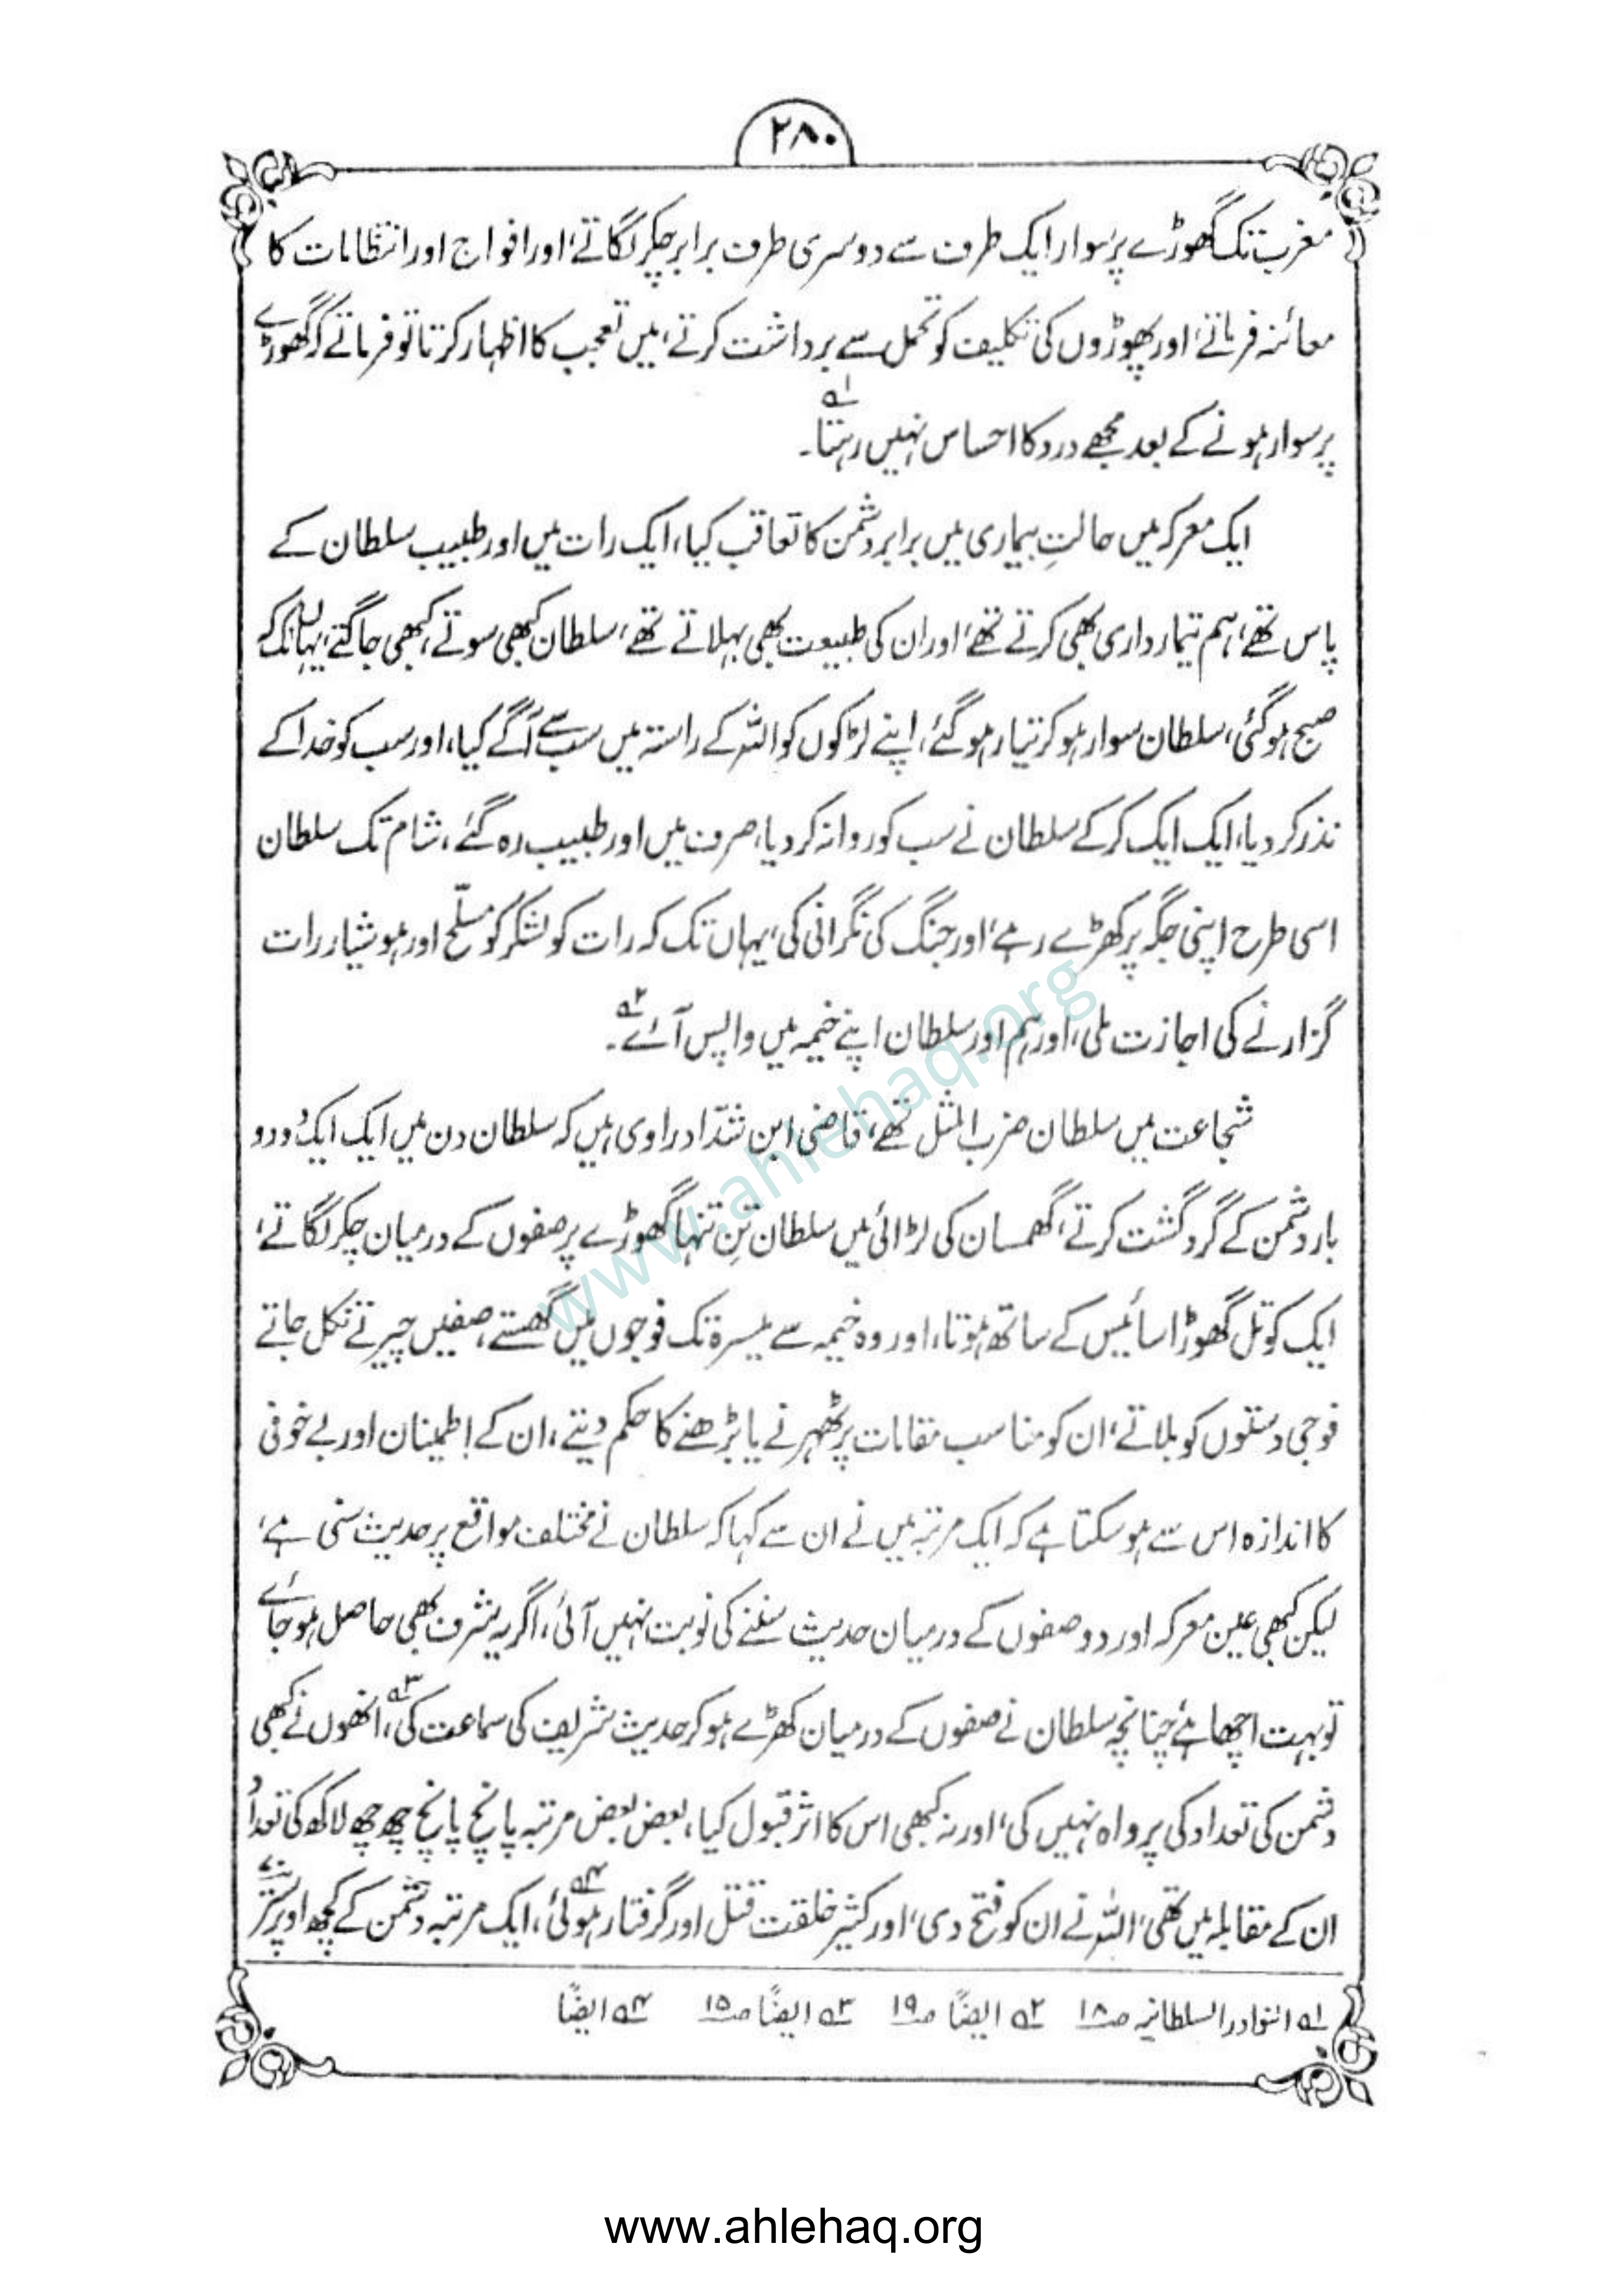 ۲۸۰
مغرب تک گھوڑے پر سوار ایک طرف سے دوسری طرف برابر چکر لگاتے، اور افواج اور انتظامات کا
معائنہ فرماتے، اور پھوڑوں کی تکلیف کو تحمل سے برداشت کرتے، میں تعجب کا اظہار کرتا تو فرماتے کہ گھوڑے
پر سوار ہونے کے بعد مجھے درد کا احساس نہیں رہتا۔ ۱ھ
ایک معرکہ میں حالتِ بیماری میں برابر دشمن کا تعاقب کیا، ایک رات میں اور طبیب سلطان کے
پاس تھے، ہم تیمارداری بھی کرتے تھے، اور ان کی طبیعت بھی بہلاتے تھے، سلطان کبھی سوتے، کبھی جاگتے، یہاں تک کہ
صبح ہو گئی، سلطان سوار ہو کر تیار ہو گئے، اپنے لڑکوں کو اللہ کے راستہ میں سب سے آگے کیا، اور سب کو خدا کے
نذر کر دیا، ایک ایک کر کے سلطان نے سب کو روانہ کر دیا، صرف میں اور طبیب رہ گئے، شام تک سلطان
اسی طرح اپنی جگہ پر کھڑے رہے، اور جنگ کی نگرانی کی، یہاں تک کہ رات کو لشکر کو مسلّح اور ہوشیار رات
گزارنے کی اجازت ملی، اور ہم اور سلطان اپنے خیمہ میں واپس آئے۔ ۲ھ
شجاعت میں سلطان ضرب المثل تھے، قاضی ابن شدّاد راوی ہیں کہ سلطان دن میں ایک ایک دو دو
بار دشمن کے گرد گشت کرتے، گھمسان کی لڑائی میں سلطان تنِ تنہا گھوڑے پر صفوں کے درمیان چکر لگاتے،
ایک کوتل گھوڑا سائیس کے ساتھ ہوتا، اور وہ خیمہ سے میسرۃ تک فوجوں میں گھستے، صفیں چیرتے نکل جاتے
فوجی دستوں کو بلاتے، ان کو مناسب مقامات پر ٹھہرنے یا بڑھنے کا حکم دیتے، ان کے اطمینان اور بے خوفی
کا اندازہ اس سے ہو سکتا ہے کہ ایک مرتبہ میں نے ان سے کہا کہ سلطان نے مختلف مواقع پر حدیث سنی ہے،
لیکن کبھی عین معرکہ اور دو صفوں کے درمیان حدیث سننے کی نوبت نہیں آئی، اگر یہ شرف بھی حاصل ہو جائے
تو بہت اچھا ہے، چنانچہ سلطان نے صفوں کے درمیان کھڑے ہو کر حدیث شریف کی سماعت کی ۳ھ، انھوں نے کبھی
دشمن کی تعداد کی پرواہ نہیں کی، اور نہ کبھی اس کا اثر قبول کیا، بعض بعض مرتبہ پانچ پانچ چھ چھ لاکھ کی تعداد
ان کے مقابلہ میں تھی، اللہ نے ان کو فتح دی، اور کثیر خلقت قتل اور گرفتار ہوئی ۴ھ، ایک مرتبہ دشمن کے کچھ اوپر ستر
۱ھ النوادر السلطانیہ ص۱۸ ۲ھ ایضًا ص۱۹ ۳ھ ایضًا ص۱۵ ۴ھ ایضًا
www.ahlehaq.org
www.ahlehaq.org